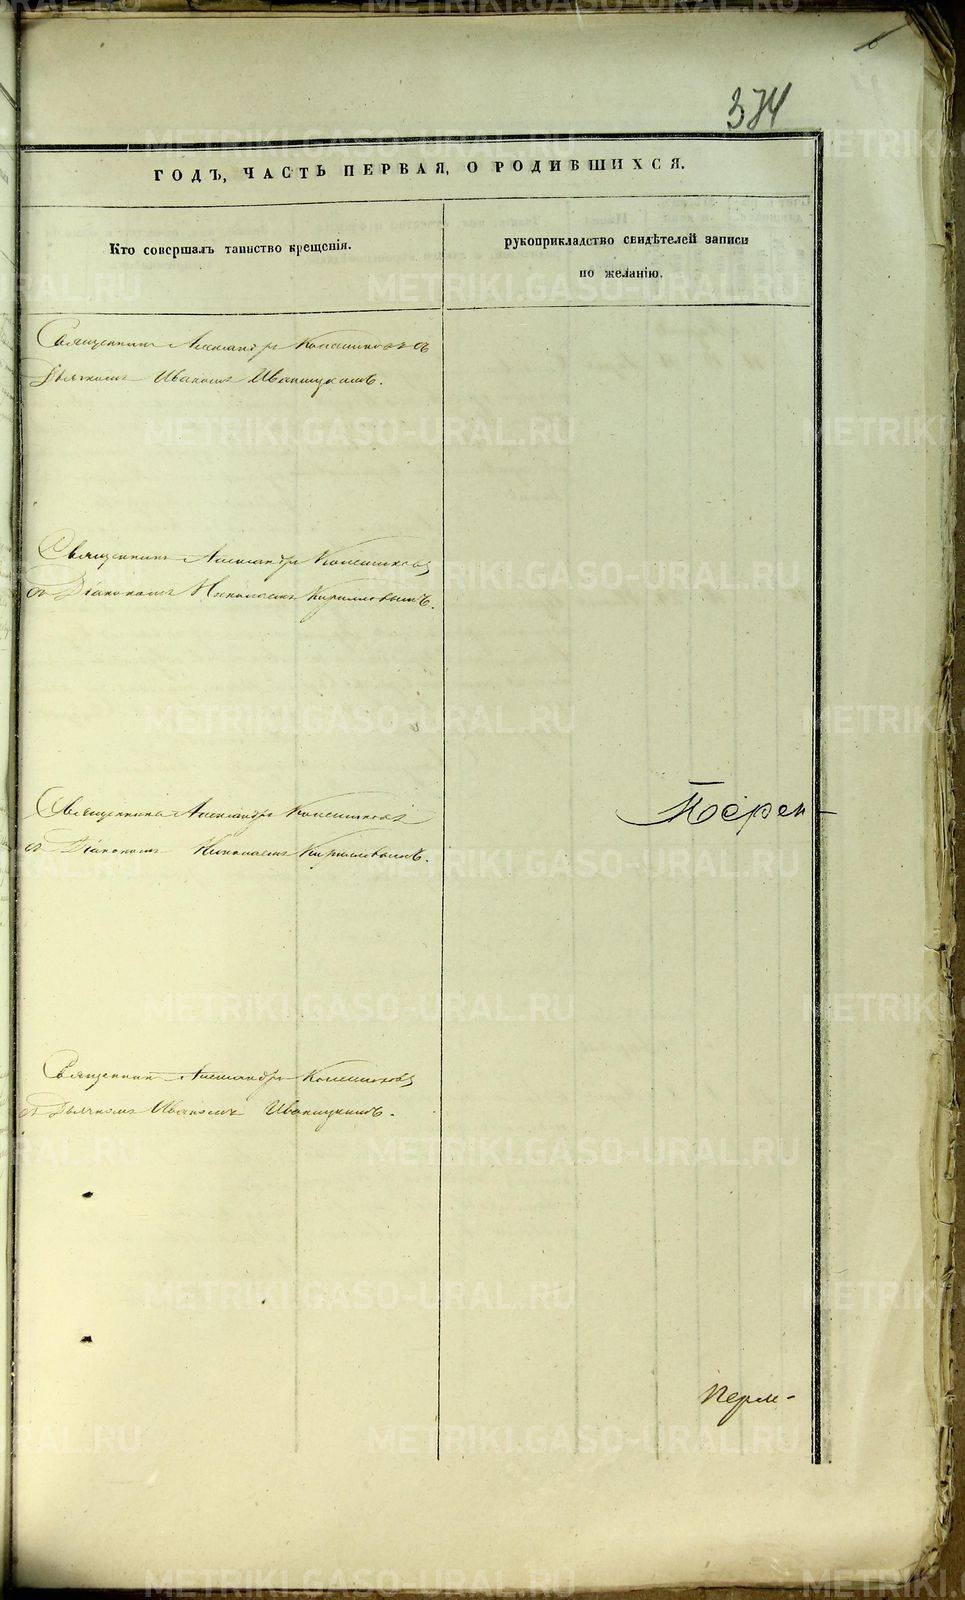 374
ГОДЪ, ЧАСТЬ ПЕРВАЯ, О РОДИВШИХСЯ.
Кто совершалъ таинство крещенія.
рукоприкладство свидѣтелей записи
по желанію.
Священникъ Александръ съ
Дьячкомъ Иваномъ
Священникъ Александръ
съ Діакономъ Николаемъ Кирилловымъ.
Священникъ Александръ
съ Діакономъ Николаемъ Кирилловымъ.
Священникъ Александръ
съ Дьячкомъ Иваномъ
Перм-
METRIKI.GASO-URAL.RU